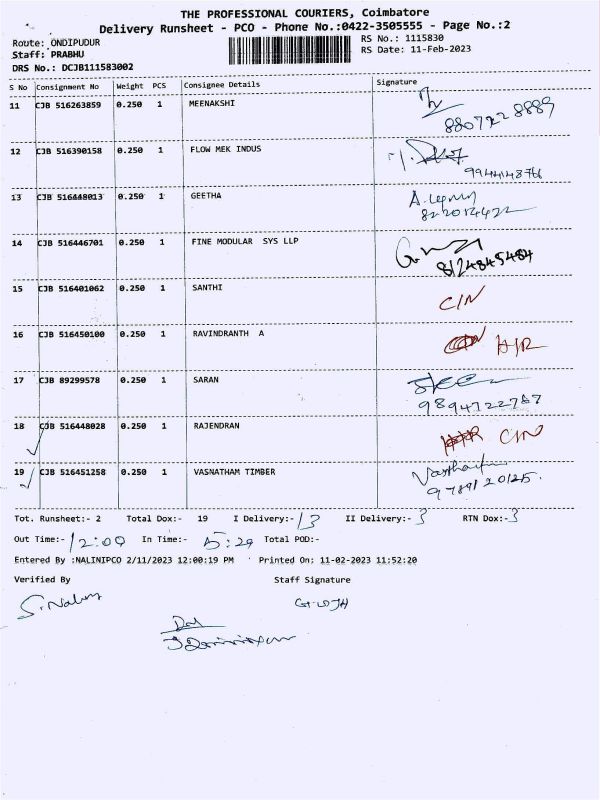 THE PROFESSIONAL COURIERS, Coimbatore
Delivery Runsheet - PCO - Phone No.:0422-3505555 - Page No.:2
Route: ONDIPUDUR RS No.: 1115830
Staff: PRABHU RS Date: 11-Feb-2023
DRS No.: DCJB111583002
S No Consignment No Weight PCS Consignee Details Signature
11 CJB 516263859 0.250 1 MEENAKSHI
12 CJB 516390158 0.250 1 FLOW MEK INDUS
9944148766
13 CJB 516448013 0.250 1 GEETHA
14 CJB 516446701 0.250 1 FINE MODULAR SYS LLP
8124845484
15 CJB 516401062 0.250 1 SANTHI C/N
16 CJB 516450100 0.250 1 RAVINDRANTH A
17 CJB 89299578 0.250 1 SARAN
9894722787
18 CJB 516448028 0.250 1 RAJENDRAN C/N
19 CJB 516451258 0.250 1 VASNATHAM TIMBER
9789120125.
Tot. Runsheet:- 2 Total Dox:- 19 I Delivery:- 13 II Delivery:- 3 RTN Dox:- 3
Out Time:- 12:00 In Time:- 5:29 Total POD:-
Entered By :NALINIPCO 2/11/2023 12:00:19 PM Printed On: 11-02-2023 11:52:20
Verified By Staff Signature